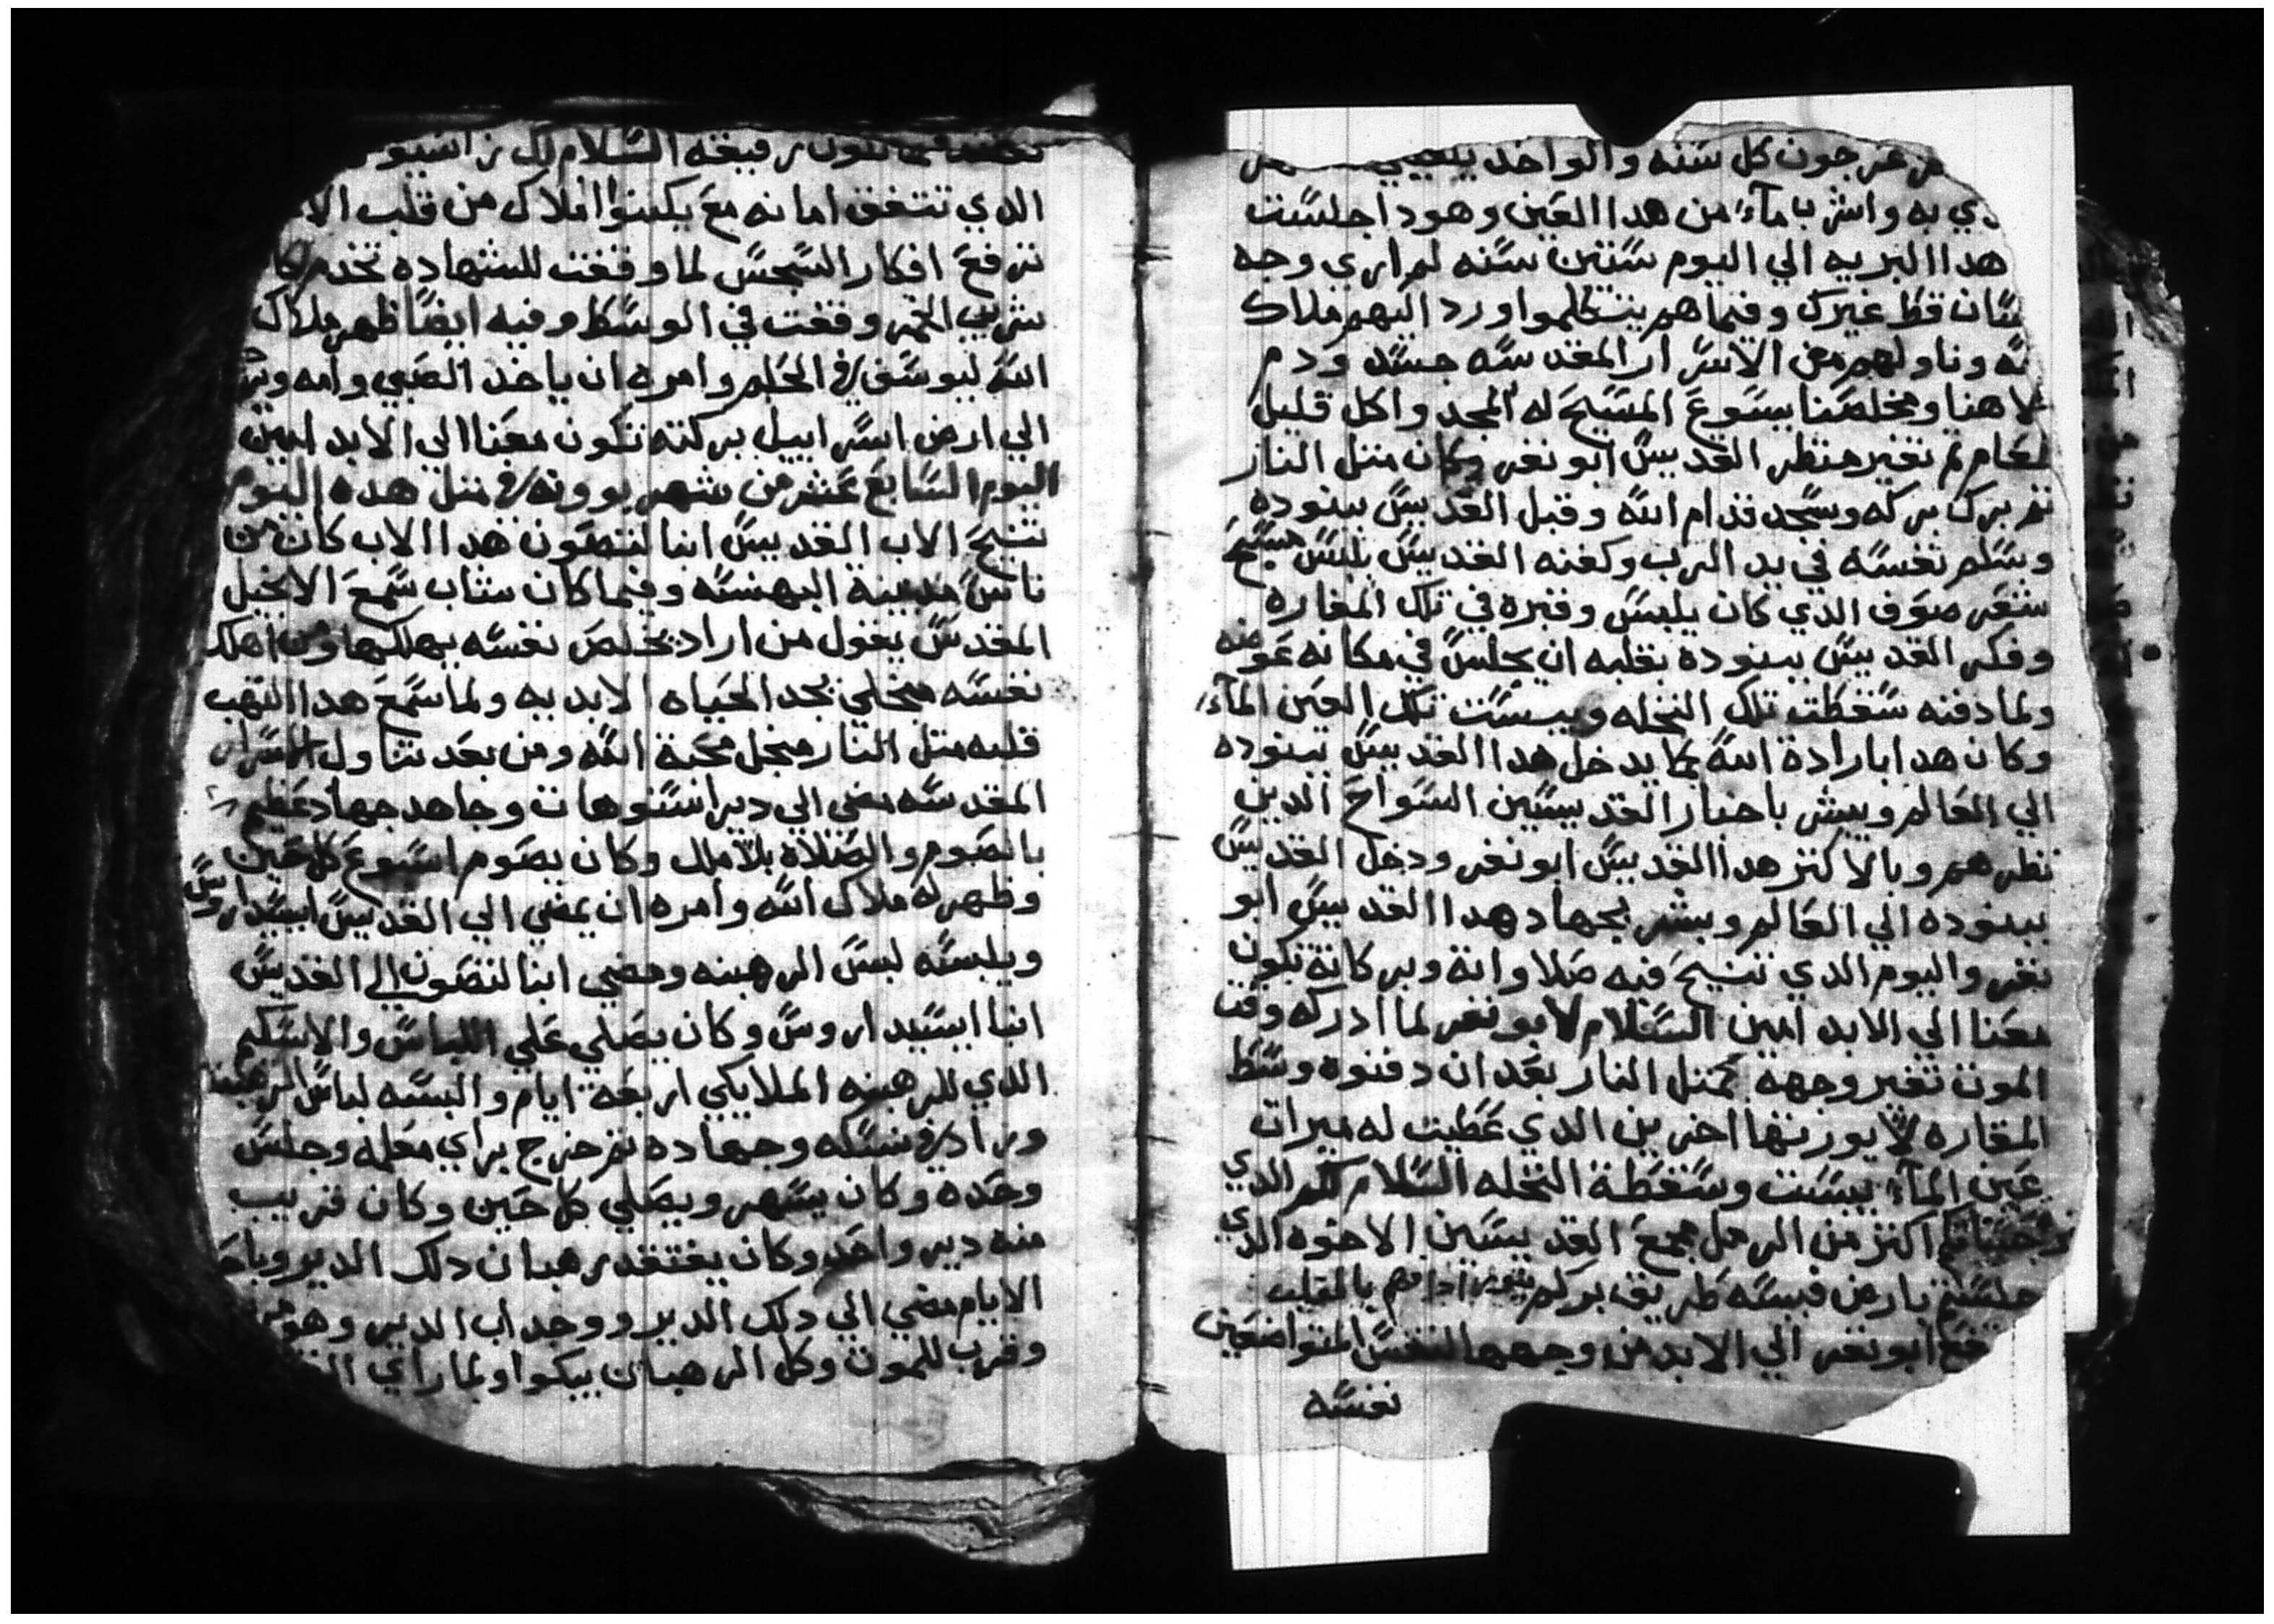 عرجون كل سنه والواحد يكفيني
دي به واشرب مآء من هدا العين وهودا جلست
هدا البريه الي اليوم ستين سنه لم اري وجه
سان قط غيرك وفيما هم يتكلموا ورد اليهم ملاك
ونا ولهم من الاسرار المقدسه جسد ودم
لاهنا ومخلصنا يسوع المسيح له المجد واكل قليل
طعام تم تغير منظر القديس ابو نفر وكان متل النار
تم برك بركه وسجد قدام الله وقبل القديس ببنوده
وسلم نفسه في يد الرب وكفنه القديس بلبس
شعر صوف الدي كان يلبس وقبره في تلك المغاره
وفكر القديس ببنوده بقلبه ان يجلس في مكانه عوضه
ولما دفنه سقطت تلك النخله ويبست تلك العين المآء
وكان هدا بارادة الله بكما يدخل هدا القديس ببنوده
الي العالم ويبشر باخبار القديسين السواح الدين
نظرهم وبالاكتر هدا القديس ابو نفر ودخل القديس
ببنوده الي العالم وبشر بجهاد هدا القديس ابو
نفر واليوم الدي تنيح فيه صلاواتة وبركاتة تكون
معنا الي الابد امين السلام لابو نفر لما ادركه وقت
الموت تغير وجهه كمتل النار بعد ان دفنوه وسط
المغاره لالا يورتها اخرين الدي عطيت له ميرات
عين المآء يبست وسقطة النخله السلام لكم الدي
اكتر من الرمل مجمع القديسين الاخوه الدي
جلستم بارض فبسه طريق بركم بالمقلب
ابو نفر الي الابد من وجهها النفس المتواضعين
نفسه
رفيقه السلام لك
الدي تتفق امانه مع يكسوا املاك من قلب
ترفع افكار السجس لما وقفت للشهاده تخدم
شريب الخمر وقفت في الوسط وفيه ايضا ظهر ملاك
الله ليوسف في الحلم وامره ان ياخد الصبي وامه
الي ارض اسراييل بركته تكون معنا الي الابد امين
اليوم السابع عشر من شهر بوونه في متل هده اليوم
تنيح الاب القديس انبا لتصون هدا الاب كان من
ناس مدينة البهنسه وفيما كان شاب سمع الانجيل
المقدس يقول من اراد يخلص نفسه يهلكها ومن اهلك
نفسه منجلي يجد الحياه الابديه ولما سمع هدا التهب
قلبه متل النار منجل محبة الله ومن بعد تناول الاسرار
المقدسه مضي الي دير اسنوهات وجاهد جهاد عظيم
بالصوم والصلاة بلا ملل وكان يصوم اسبوع كل حين
وظهر له ملاك الله وامره ان يمضي الي القديس ايسيداروس
ويلبسه لبس الرهبنه ومضي انبا لتصون الي القديس
انبا ايسيداروس وكان يصلي علي اللباس والاسكيم
الدي للرهبنه الملايكي اربعة ايام والبسه لباس الرهبنه
وراد في نسكه وجهاده تم خرج براي معلمه وجلس
وحده وكان يسهر ويصلي كل حين وكان قريب
منه دير واحد وكان يفتقد رهبان دلك الدير
الايام مضي الي دلك الدير ووجد اب الدير وهو
وقرب للموت وكل الرهبان يبكوا ولما راي